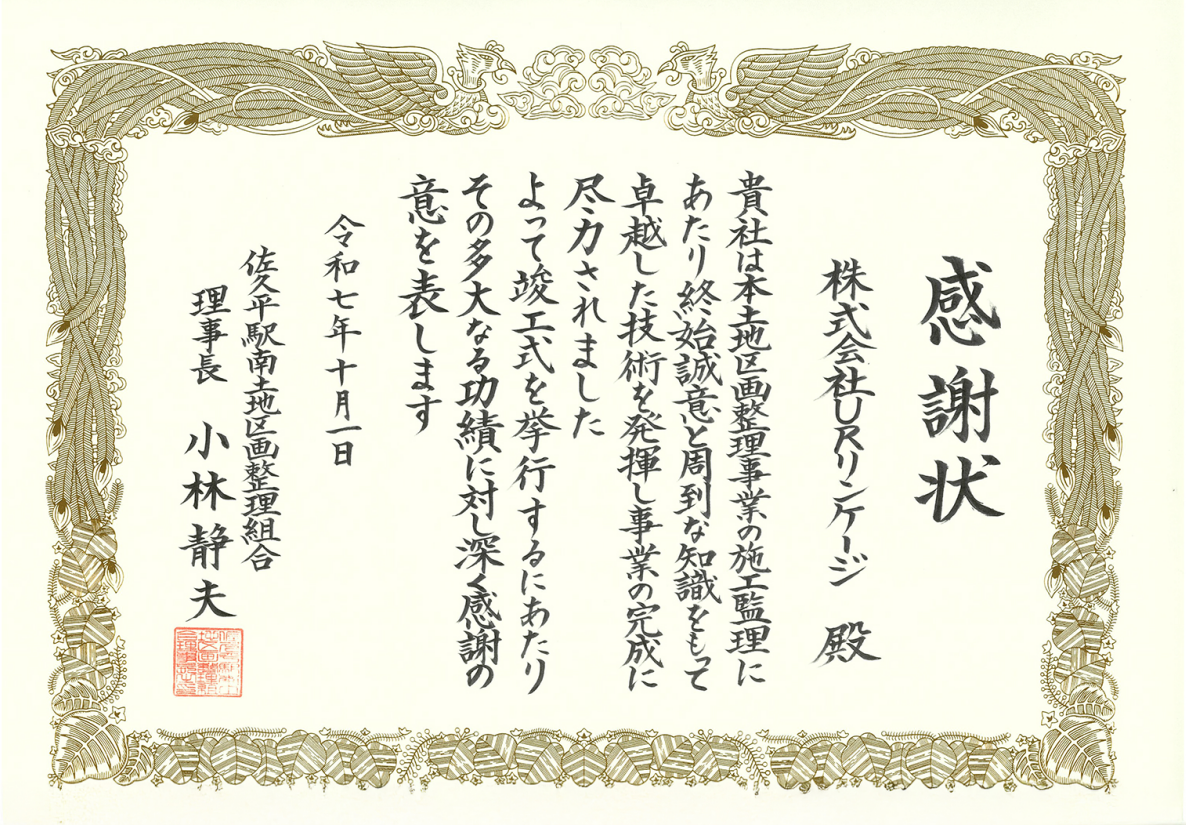 感謝状
株式会社URリンケージ 殿
貴社は本土地区画整理事業の施工監理に
あたり終始誠意と周到な知識をもって
卓越した技術を発揮し事業の完成に
尽力されました
よって竣工式を挙行するにあたり
その多大なる功績に対し深く感謝の
意を表します
令和七年十月一日
佐久平駅南土地区画整理組合
理事長 小林静夫